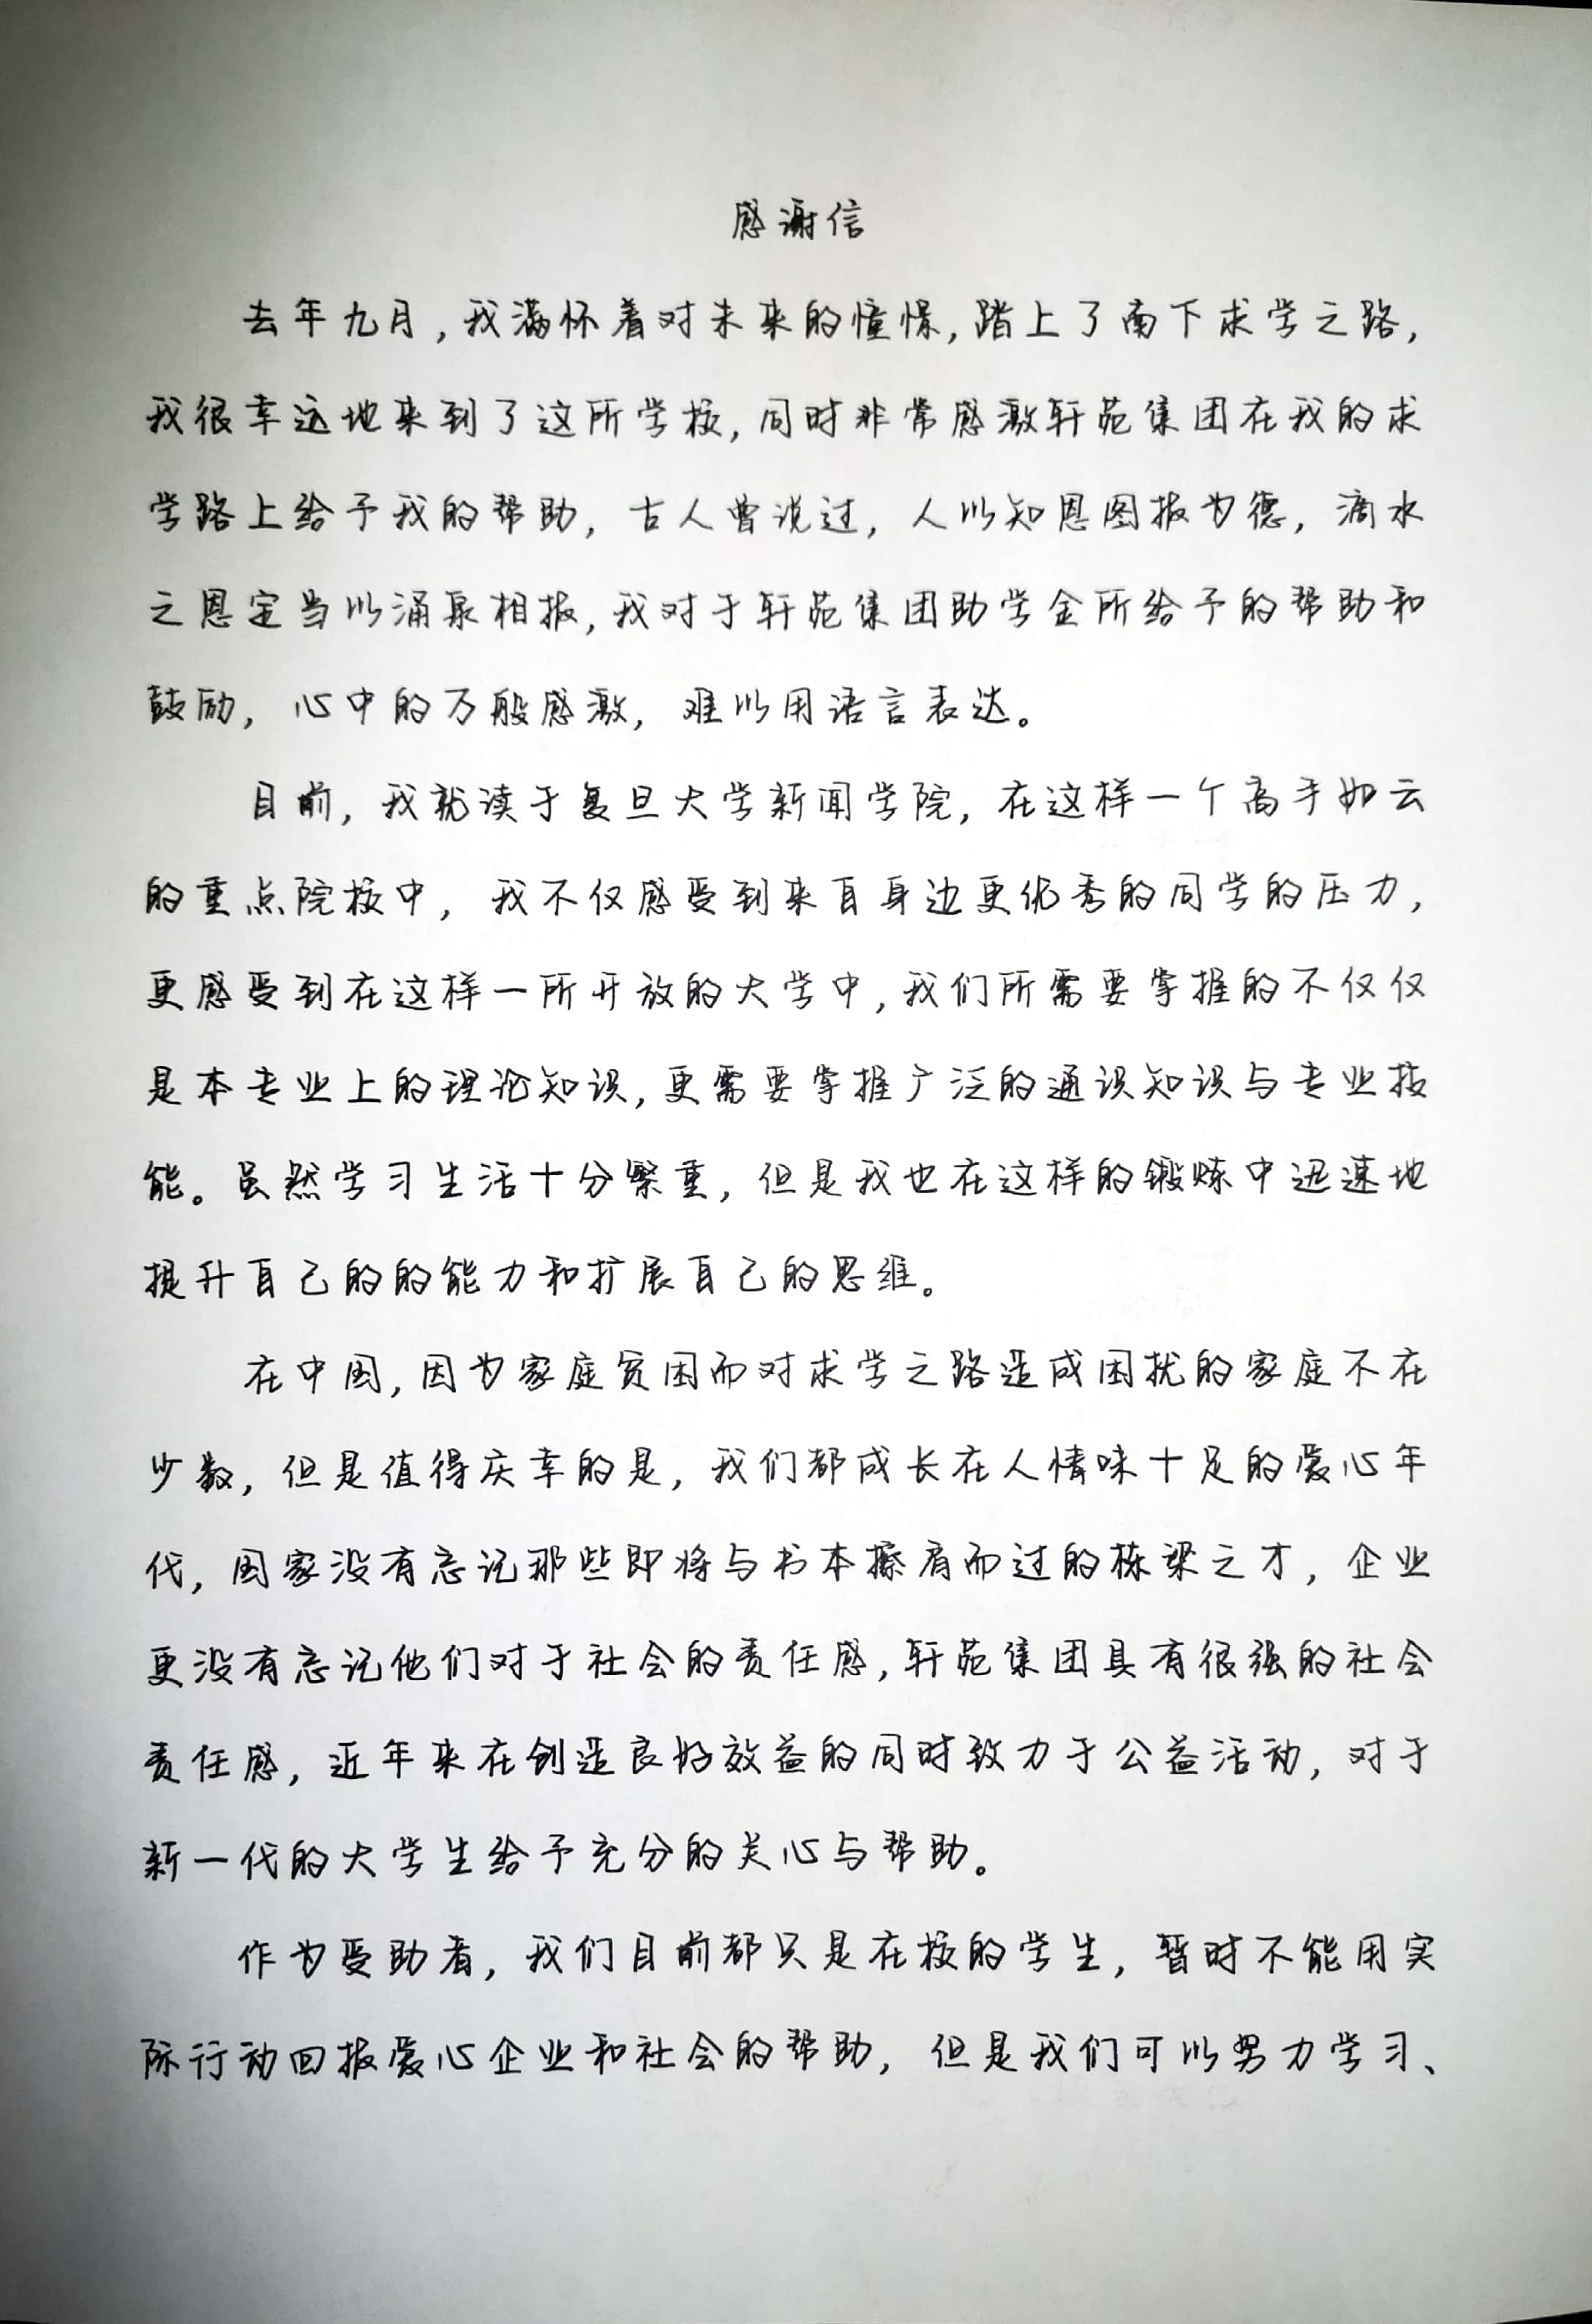 感谢信
去年九月,我满怀着对未来的憧憬,踏上了南下求学之路,
我很幸运地来到了这所学校,同时非常感激轩苑集团在我的求
学路上给予我的帮助,古人曾说过,人以知恩图报为德,滴水
之恩定当以涌泉相报,我对于轩苑集团助学金所给予的帮助和
鼓励,心中的万般感激,难以用语言表达。
目前,我就读于复旦大学新闻学院,在这样一个高手如云
的重点院校中,我不仅感受到来自身边更优秀的同学的压力,
更感受到在这样一所开放的大学中,我们所需要掌握的不仅仅
是本专业上的理论知识,更需要掌握广泛的通识知识与专业技
能。虽然学习生活十分繁重,但是我也在这样的锻炼中迅速地
提升自己的的能力和扩展自己的思维。
在中国,因为家庭贫困而对求学之路造成困扰的家庭不在
少数,但是值得庆幸的是,我们都成长在人情味十足的爱心年
代,国家没有忘记那些即将与书本擦肩而过的栋梁之才,企业
更没有忘记他们对于社会的责任感,轩苑集团具有很强的社会
责任感,近年来在创造良好效益的同时致力于公益活动,对于
新一代的大学生给予充分的关心与帮助。
作为受助者,我们目前都只是在校的学生,暂时不能用实
际行动回报爱心企业和社会的帮助,但是我们可以努力学习、